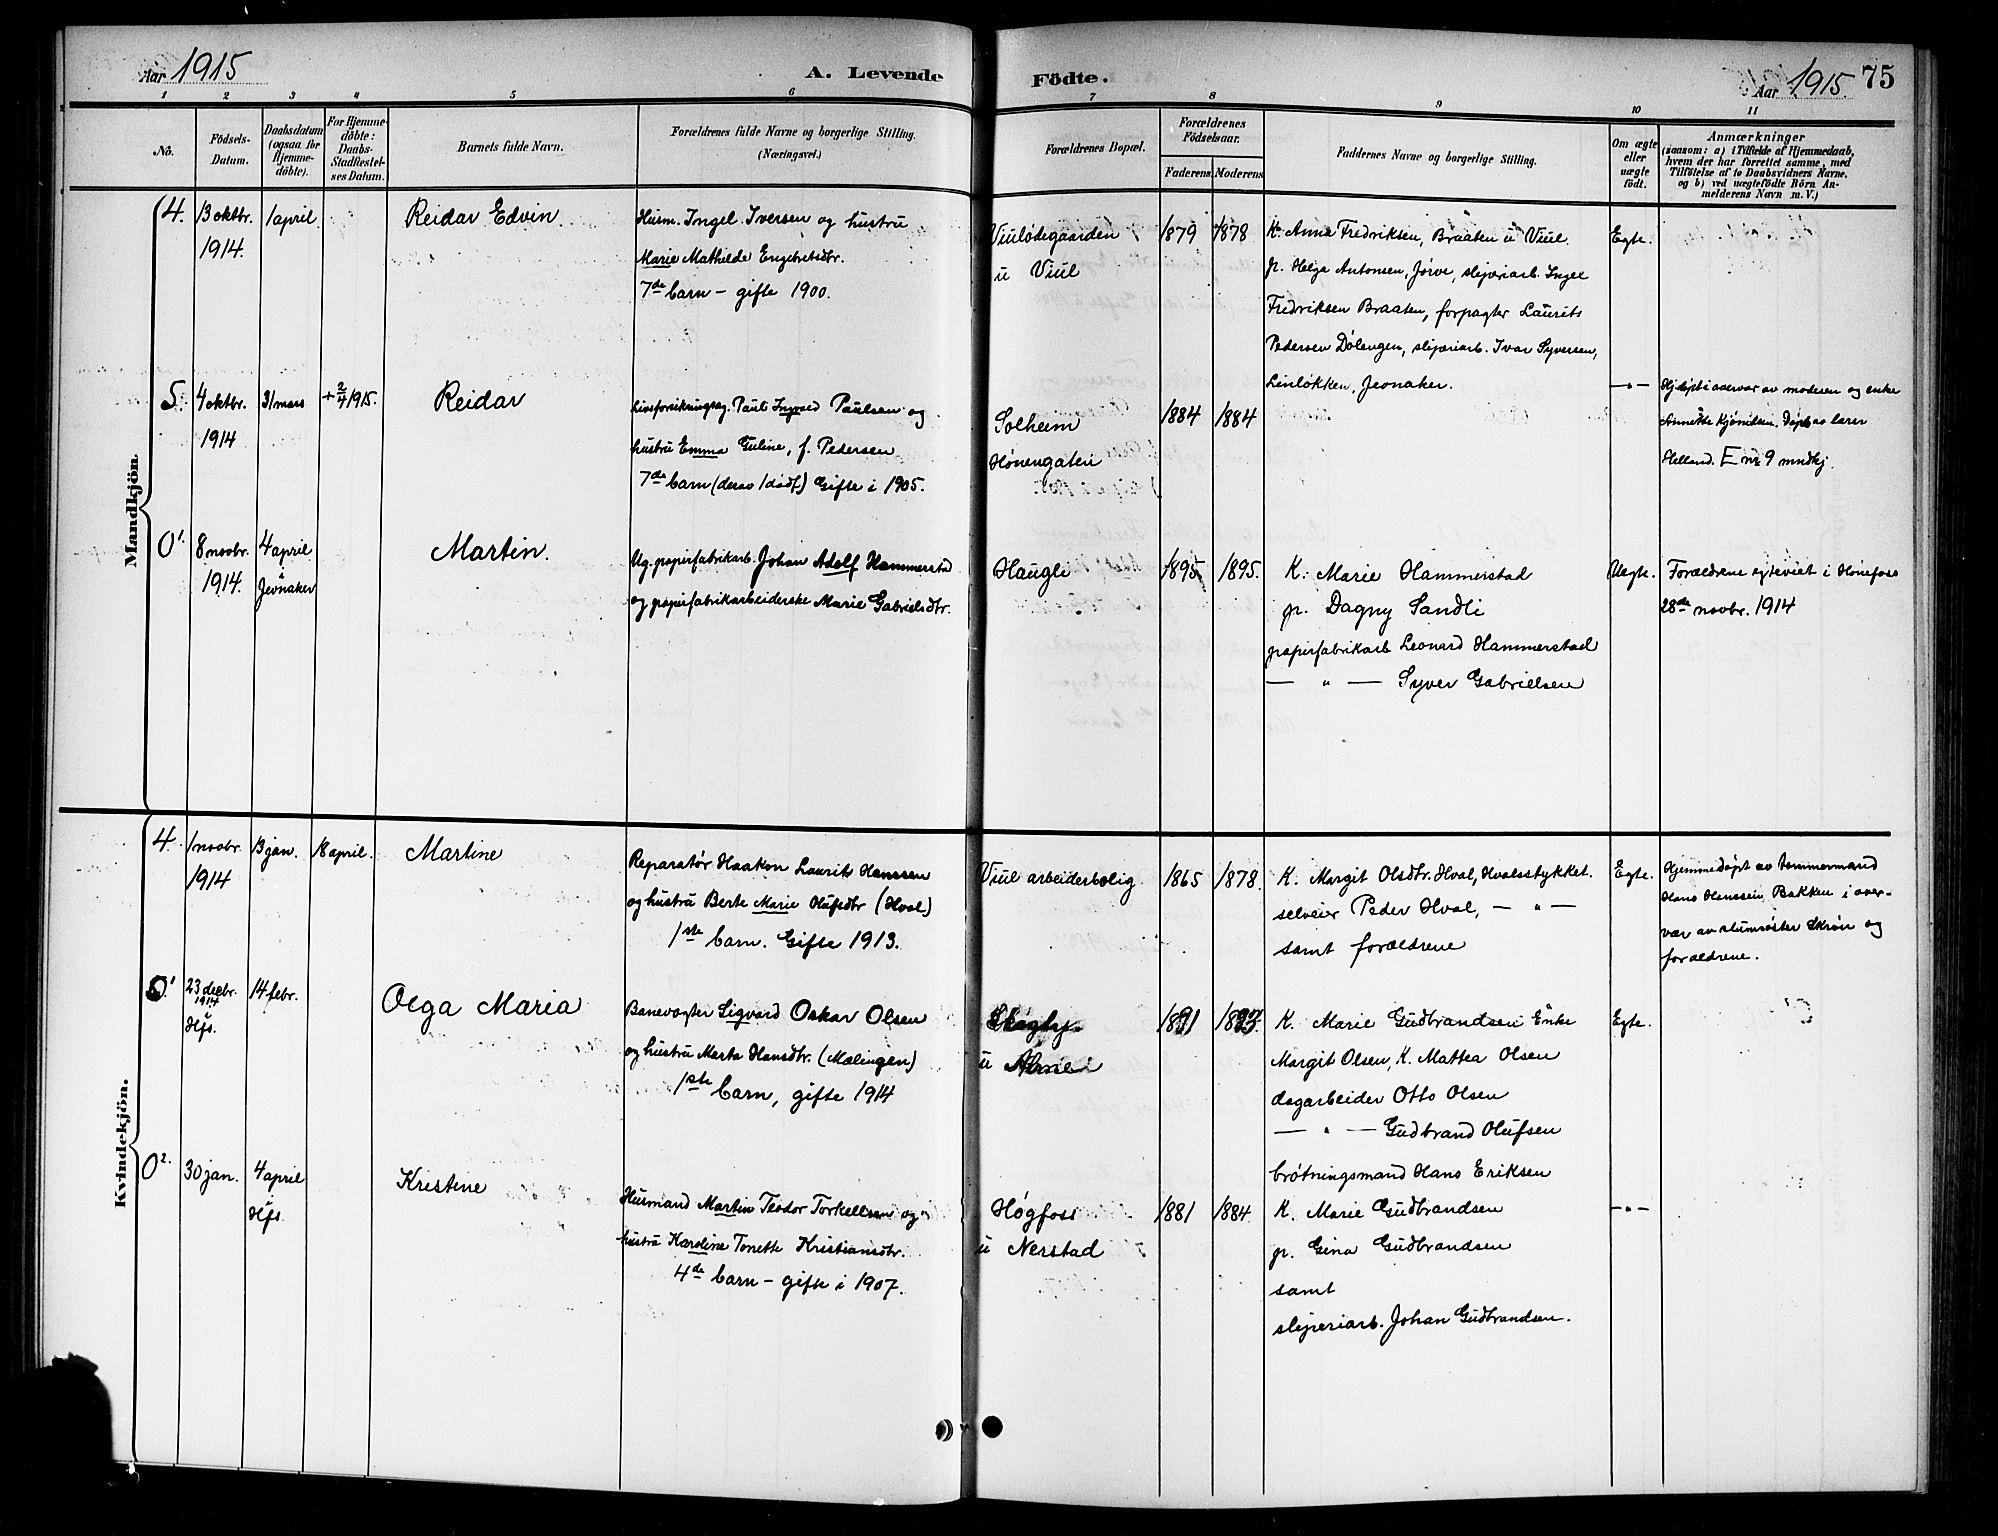 Aar 1915
A. Levende
Födte.
Aar 1915. 75
1 2 3 4 5 6 7 8 9 10 11
No.
Födsels-
Datum.
Daabsdatum
(ogsaa for
Hjemme-
döbte).
For Hjemme-
döbte:
Daabs-
Stadfæstel-
ses Datum.
Barnets fulde Navn.
Forældrenes fulde Navne og borgerlige Stilling.
(Næringsvei.)
Forældrenes Bopæl.
Forældrenes
Födselsaar.
Faderens. Moderens.
Faddernes Navne og borgerlige Stilling.
Om ægte
eller
uægte
födt.
Anmærkninger
(saasom: a) i Tilfælde af Hjemmedaab,
hvem der har forrettet samme, med
Tilföielse af to Daabsvidners Navne.
og b) ved uægtefödte Börn An-
melderens Navn m. V.)
Mandkjön.
4.
13 oktbr.
1914.
1 april
Reidar Edvin
Husm. Ingel Iversen og hustru
Marie Mathilde Engebretsdtr.
7de barn – gifte 1900.
Viulødegaarden
u Viul
1879 1878
K. Anna Fredriksen, Braaten u Viul.
p. Helga Antonsen, Jørve, sliperiarb. Ingel
Fredriksen Braaten, forpagter Laurits
Pedersen Dølengen, sliperiarb. Ivar Syversen,
Linløkken, Jevnaker.
Egte.
5.
4 oktbr.
1914
31 mars
+ 2/4 1915.
Reidar
Livsforsikringsag. Paul Ingvald Paulsen og
hustru Emma Guline, f. Pedersen
7de barn (derav 1 dødf) Gifte i 1905.
Solheim
Hønengaten
1884 1884
— " —
Hj.døpt i overvær av moderen og enke
Annette Kjønidsen. Døpt av lærer
Helland. E nr 9 mndkj.
0 1.
8 novbr.
1914.
4 april
Jevnaker
Martin.
Ug. papirfabrikarb. Johan Adolf Hammerstad
og papirfabrikarbeiderske Marie Gabrielsdtr.
Haugli
1895 1895.
K. Marie Hammerstad
p. Dagny Sandli
papirfabrikarb Leonard Hammerstad
— " — Syver Gabrielsen
Uegte.
Forældrene egteviet i Hönefoss
28de novbr. 1914
Kvindekjön.
4.
1 novbr.
1914
13 jan.
18 april.
Martine
Reparatør Haakon Laurits Hanssen
og hustru Berte Marie Olufsdtr (Hval)
1ste barn. Gifte 1913.
Viul arbeiderbolig
1865 1878.
K. Margit Olsdtr. Hval, Hvalsstykket.
selveier Peder Hval, — " —
samt forældrene
Egte.
Hjemmedøpt av tømmermand
Hans Hanssen, Bakken i over-
vær av slumsøster Skrøn og
forældrene.
0 1
23 decbr.
1914
Hfs.
14 febr.
Olga Maria
Banevogter Sigvard Oskar Olsen
og hustru Marta Hansdtr. (Mælingen)
1ste barn, gifte 1914
u
K. Marie Gudbrandsen Enke
Margit Olsen, K. Mattea Olsen
dagarbeider Otto Olsen
— " — Gudbrand Olufsen
brøtningsmand Hans Eriksen
Egte.
0 2.
30 jan.
4 april
Hfs
Kristine
Husmand Martin Teodor Torkelsen og
hustru Karoline Tonette Kristiansdtr.
4de barn – gifte i 1907.
Høgfoss
u Nerstad
1881 1884.
K. Marie Gudbrandsen
p. Gina Gudbrandsen
samt
sliperiarb. Johan Gudbrandsen.
— " —